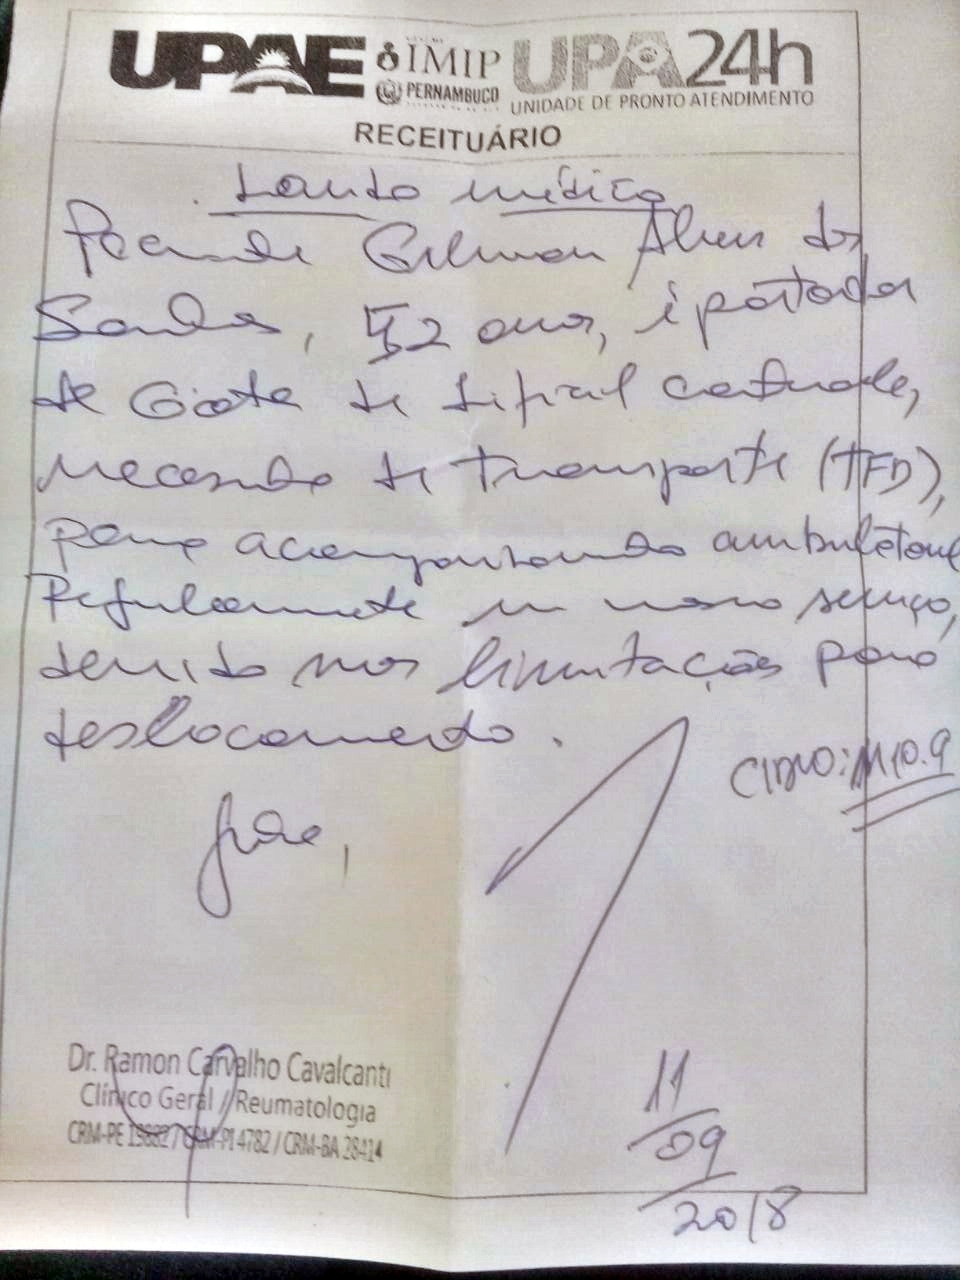 UPAE IMIP PERNAMBUCO UPA 24h
UNIDADE DE PRONTO ATENDIMENTO
RECEITUÁRIO
Laudo médico
Paciente Gilmar Alves dos
Santos, 52 anos, é portador
de Gota de difícil controle,
necessitando de transporte (TFD),
para acompanhamento ambulatorial
Regularmente em nosso serviço,
devido nas limitações para
deslocamento.
CID10: M10.9
Grato,
Dr. Ramon Carvalho Cavalcanti
Clínico Geral / Reumatologia
CRM-PE / CRM-PI 4782 / CRM-BA 28414
11/09/2018